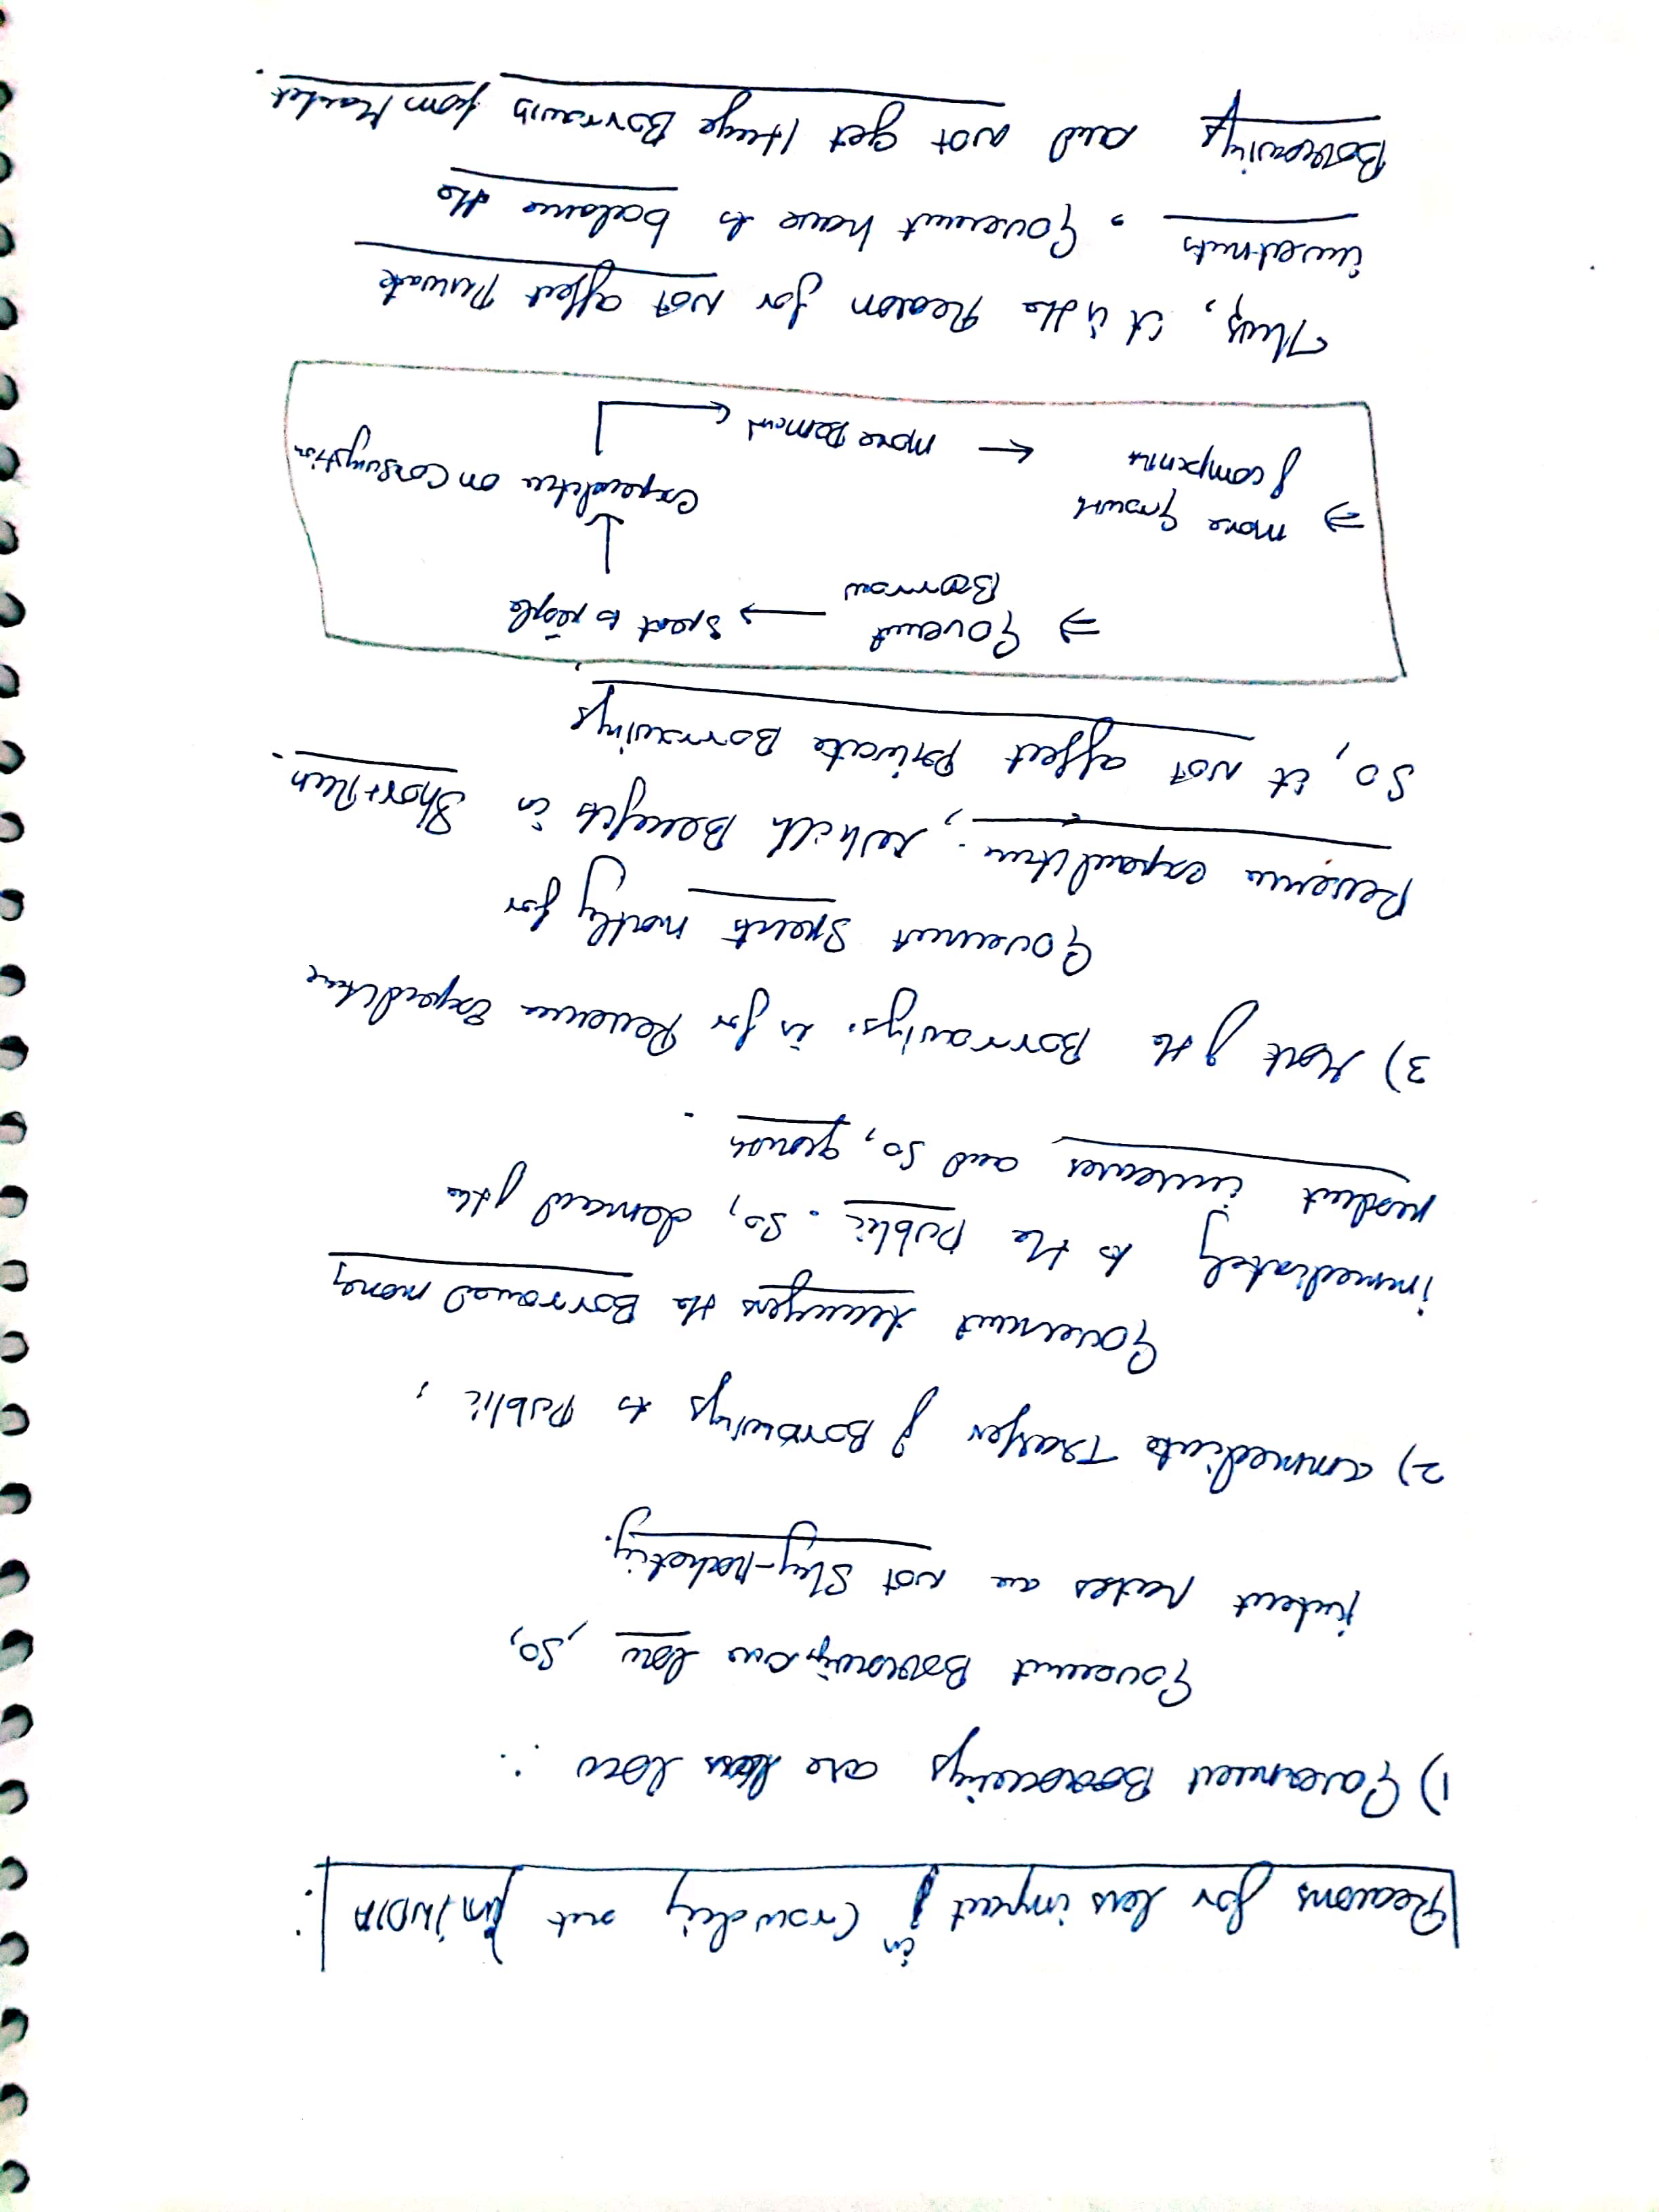 Reasons for less impact in Crowding out in INDIA :
1) Government Borrowings are low :
Goverment Borrowings are low, So,
interest rates are not Sky-rocketing.
2) immediate Transfer of Borrowings to Public ;
Goverment transfers the Borrowed money
immediately to the Public. So, demand of the
product increases and So, growth .
3) Most of the Borrowings. is for Revenue Expenditure
Goverment Spends mostly for
Revenue expenditure, which Benefits in Short Run.
So, it NOT affect Private Borrowings
⇒ Goverment Borrow → Spent to people
↓
expenditure on Consumption
⇒ more Growth of companies ← more Demand ←
Thus, it is the Reason for NOT affect Private
investments, Goverment have to balance the
Borrowings and NOT get Huge Borrowin from Market.